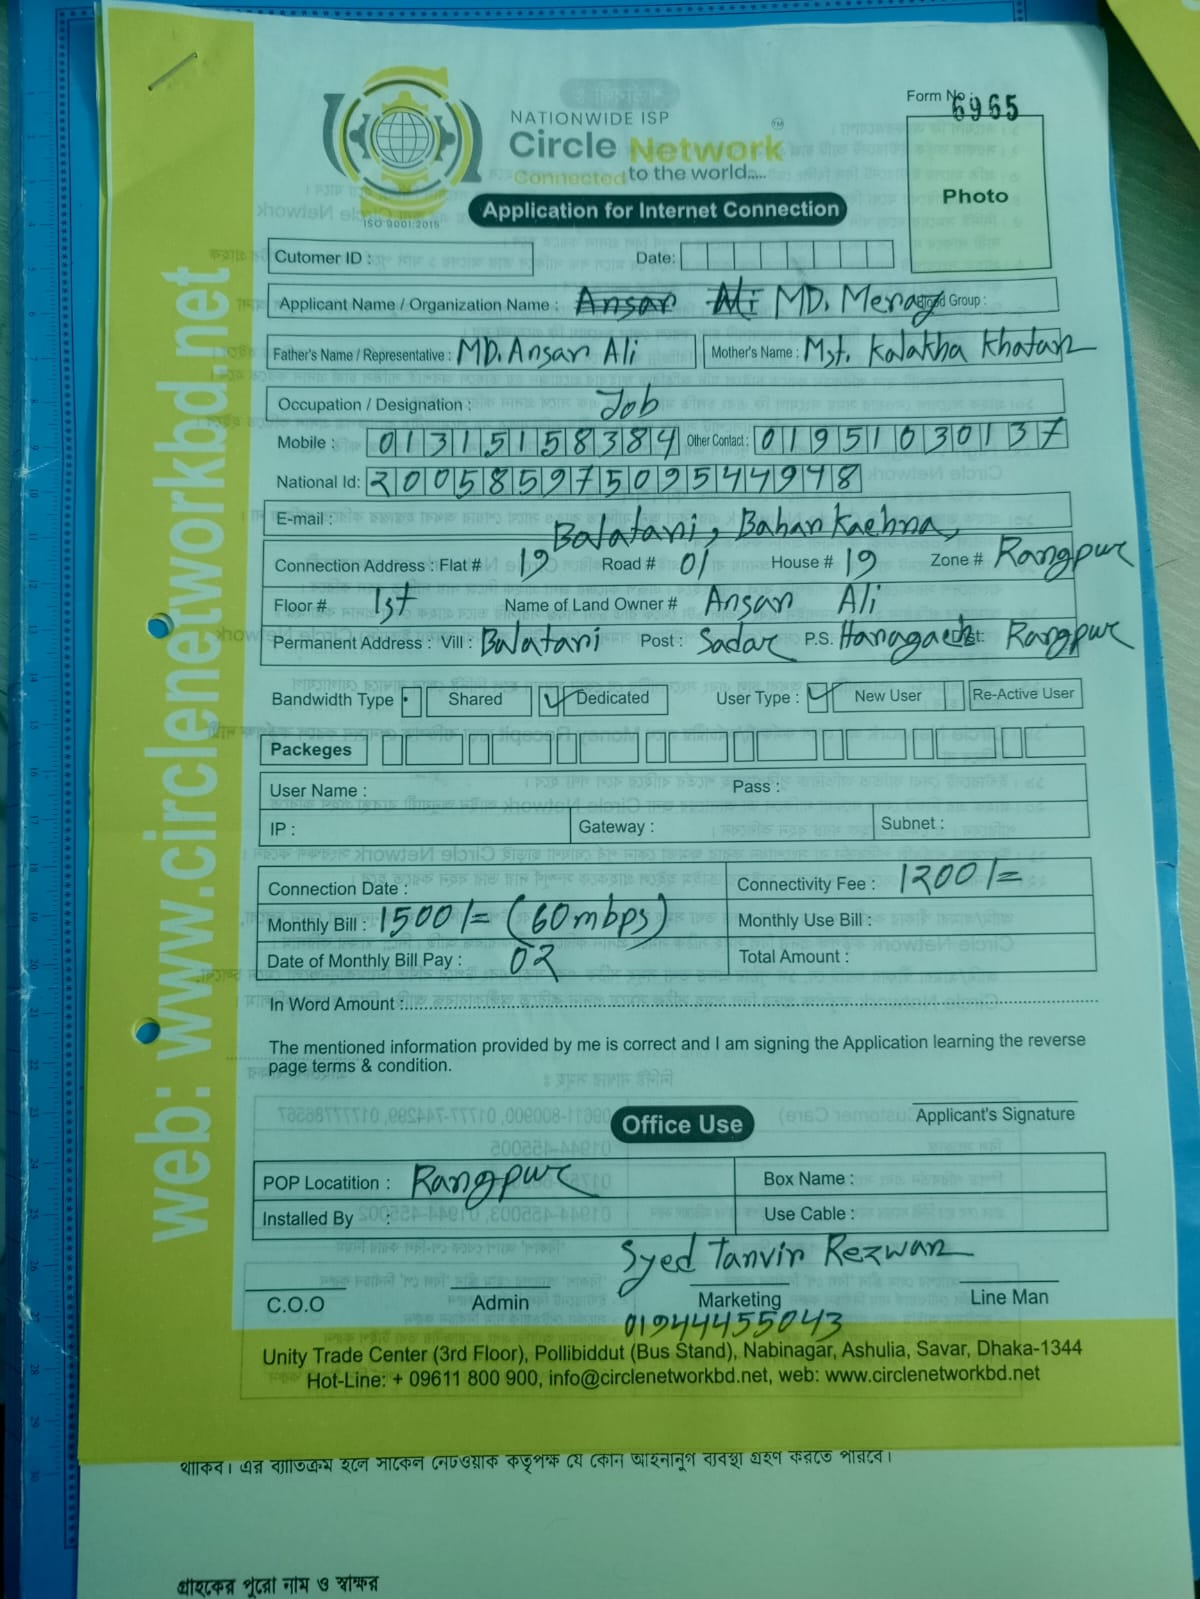 Form No : 6965
NATIONWIDE ISP
Circle Network TM
Connected to the world.....
ISO 9001:2015
Application for Internet Connection
Photo
Cutomer ID :
Date:
Applicant Name / Organization Name : Ansar Ali MD. Merag Blood Group :
Father's Name / Representative : MD. Ansar Ali
Mother's Name : Mst. Kalakha Khatan
Occupation / Designation : Job
Mobile : 01315158384 Other Contact : 01951030137
National Id: 20058597509544948
E-mail :
Balatani, Bahar Kachna,
Connection Address : Flat # 19 Road # 01 House # 19 Zone # Rangpur
Floor # 1st Name of Land Owner # Ansar Ali
Permanent Address : Vill : Balatani Post : Sadar P.S. Haragach Dist: Rangpur
Bandwidth Type Shared ✓ Dedicated User Type : ✓ New User Re-Active User
Packeges
User Name : Pass :
IP : Gateway : Subnet :
Connection Date : Connectivity Fee : 1200/=
Monthly Bill : 1500/= (60mbps) Monthly Use Bill :
Date of Monthly Bill Pay : 02 Total Amount :
In Word Amount :
The mentioned information provided by me is correct and I am signing the Application learning the reverse
page terms & condition.
Applicant's Signature
Office Use
POP Locatition : Rangpur Box Name :
Installed By : Use Cable :
Syed Tanvir Rezwan
C.O.O Admin Marketing Line Man
01944455043
Unity Trade Center (3rd Floor), Pollibiddut (Bus Stand), Nabinagar, Ashulia, Savar, Dhaka-1344
Hot-Line: + 09611 800 900, info@circlenetworkbd.net, web: www.circlenetworkbd.net
web: www.circlenetworkbd.net
থাকিব। এর ব্যতিক্রম হলে সার্কেল নেটওয়ার্ক কতৃপক্ষ যে কোন আইনানুগ ব্যবস্থা গ্রহণ করতে পারবে।
গ্রাহকের পুরো নাম ও স্বাক্ষর